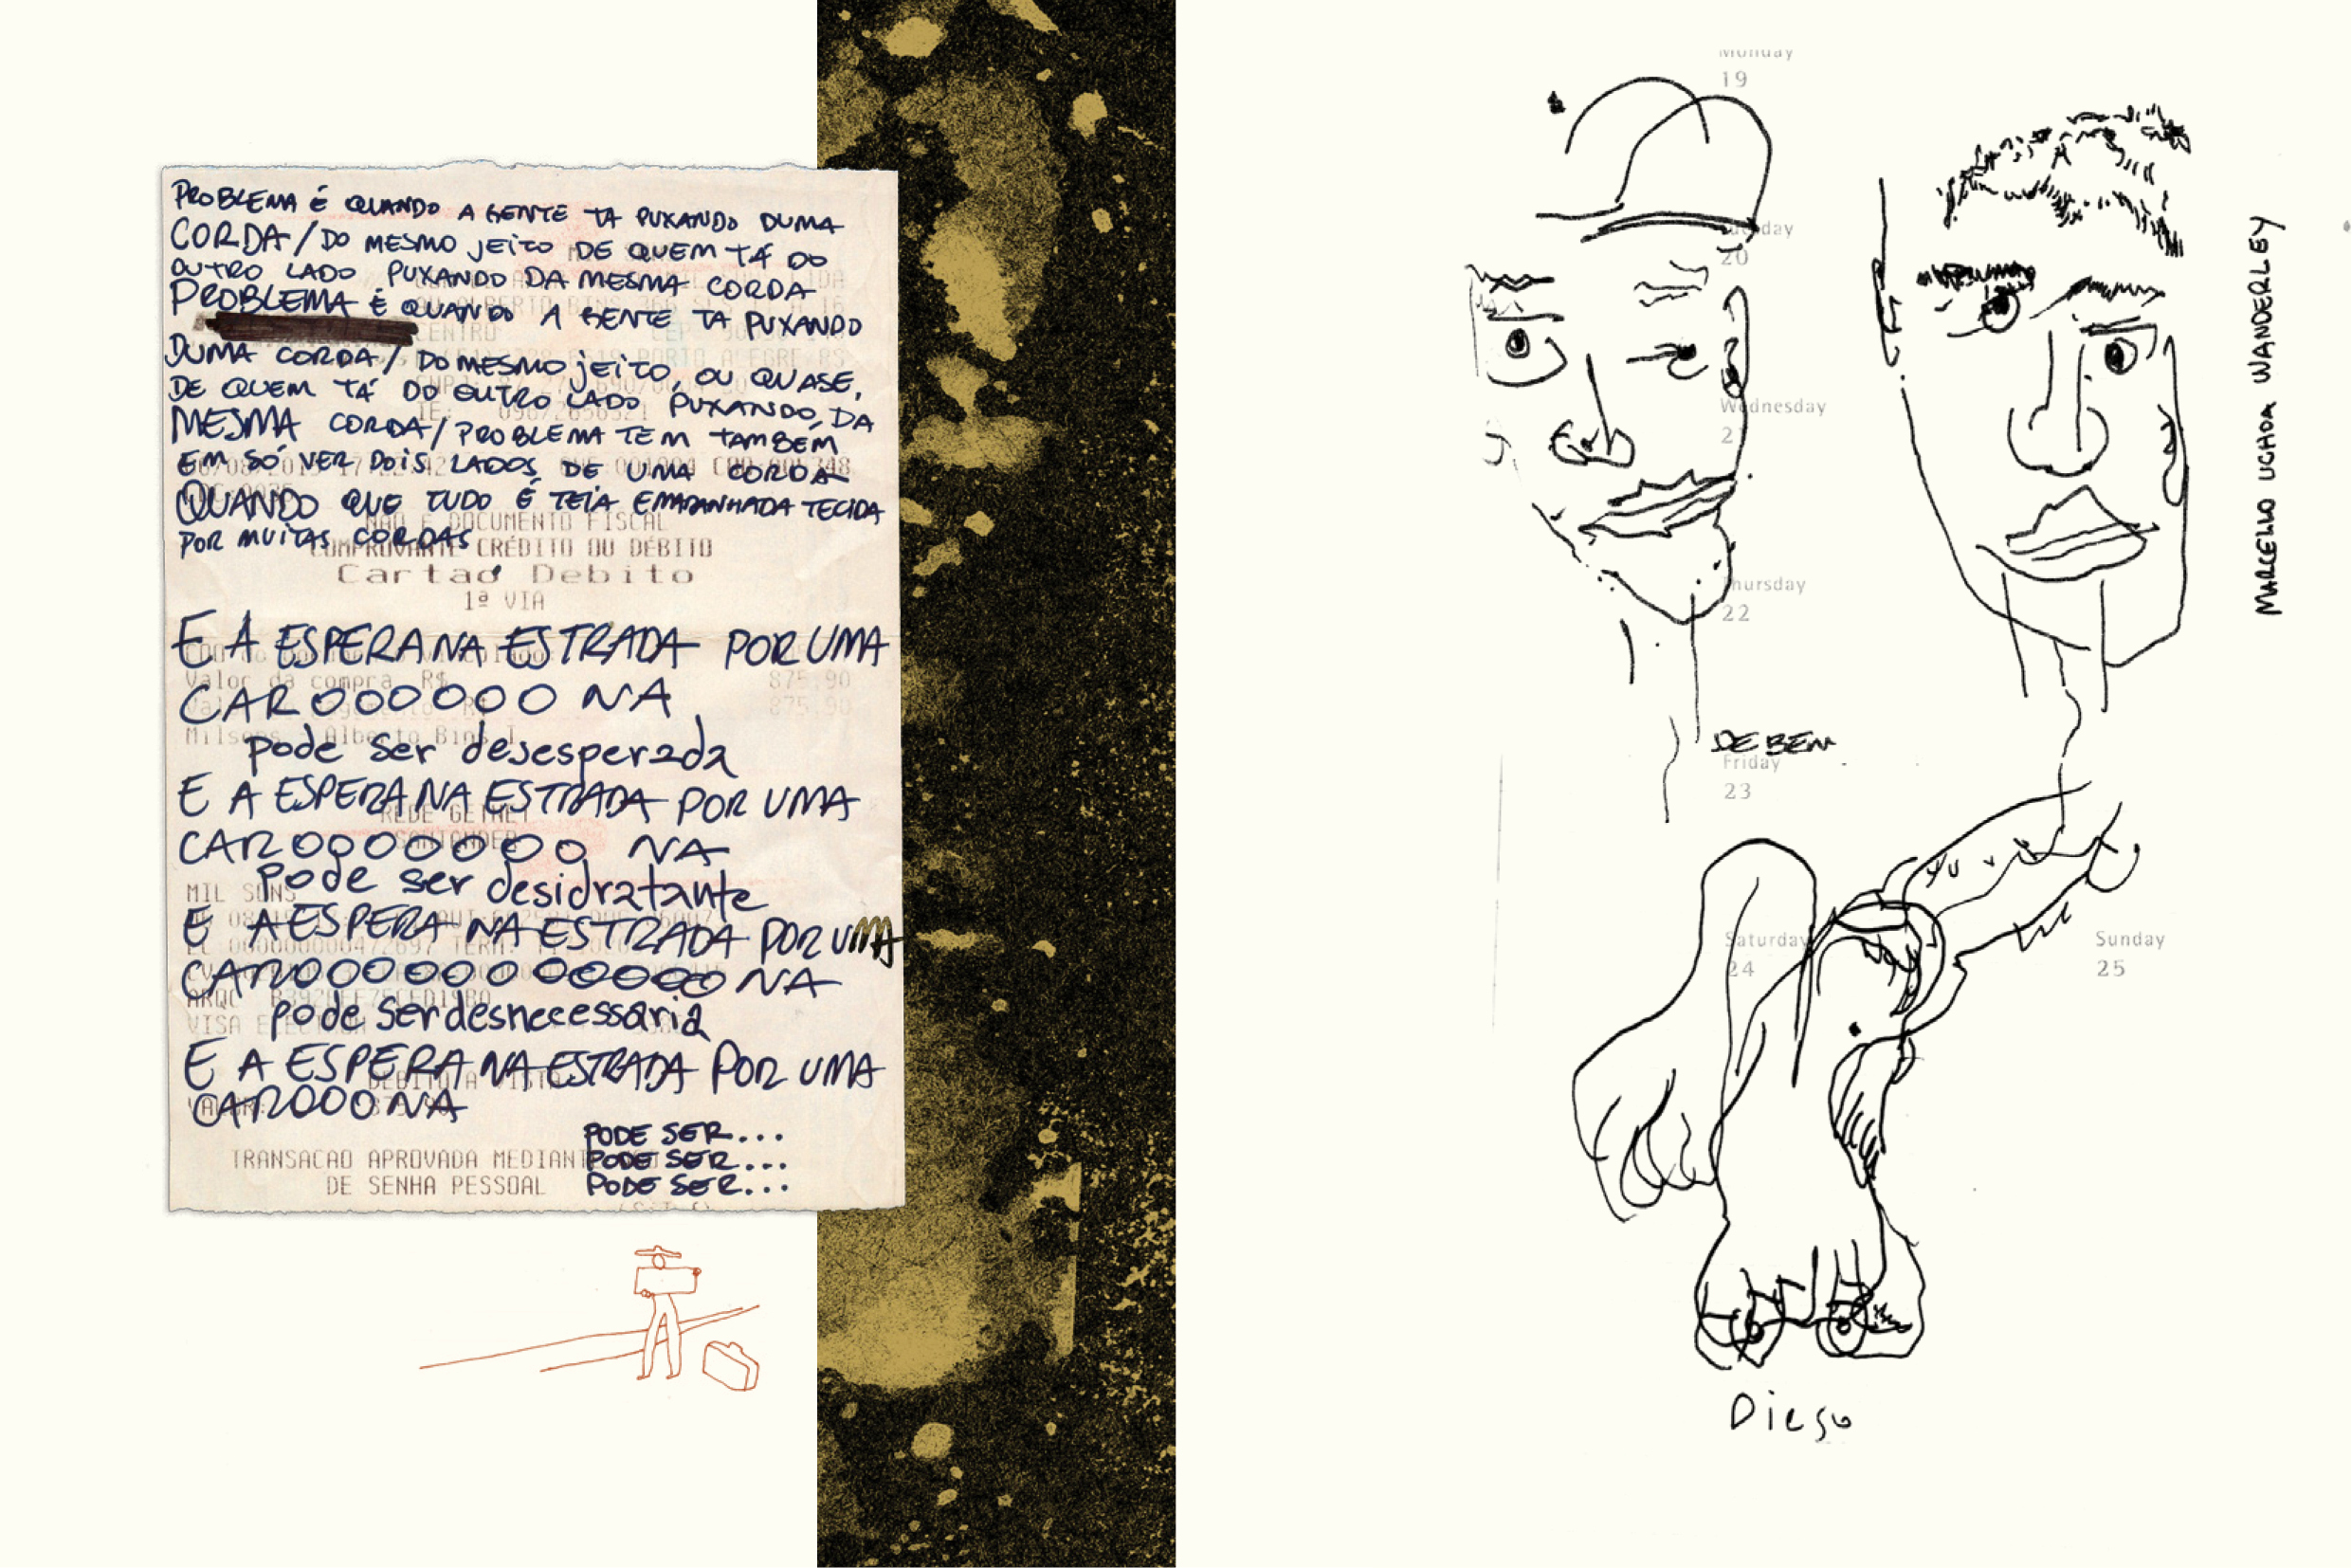 PROBLEMA É QUANDO A GENTE TA PUXANDO DUMA
CORDA/DO MESMO JEITO DE QUEM TÁ DO
OUTRO LADO PUXANDO DA MESMA CORDA
PROBLEMA É QUANDO A GENTE TA PUXANDO
DUMA CORDA/DO MESMO JEITO, OU QUASE,
DE QUEM TÁ DO OUTRO LADO PUXANDO, DA
MESMA CORDA/PROBLEMA TEM TAMBÉM
EM SÓ VER DOIS LADOS DE UMA CORDA
QUANDO QUE TUDO É TEIA EMARANHADA TECIDA
POR MUITAS CORDAS
NAO E DOCUMENTO FISCAL
COMPROVANTE CRÉDITO OU DÉBITO
Cartao Debito
1ª VIA
E A ESPERA NA ESTRADA POR UMA
CAROOOOOO NA
Valor da compra R$ 875,90
875,90
pode ser desesperada
E A ESPERA NA ESTRADA POR UMA
REDE GETNET
CAROOOOOOO NA
SANTANDER
pode ser desidratante
MIL SONS
E A ESPERA NA ESTRADA POR UMA
CAROOOOOOOOOOO NA
pode ser desnecessaria
E A ESPERA NA ESTRADA POR UMA
CAROOONA
PODE SER...
PODE SER...
PODE SER...
TRANSACAO APROVADA
DE SENHA PESSOAL
Monday
19
20
Wednesday
Thursday
22
DE BEM
Friday
23
Saturday
24
Sunday
25
Diego
MARCELLO UCHOA WANDERLEY